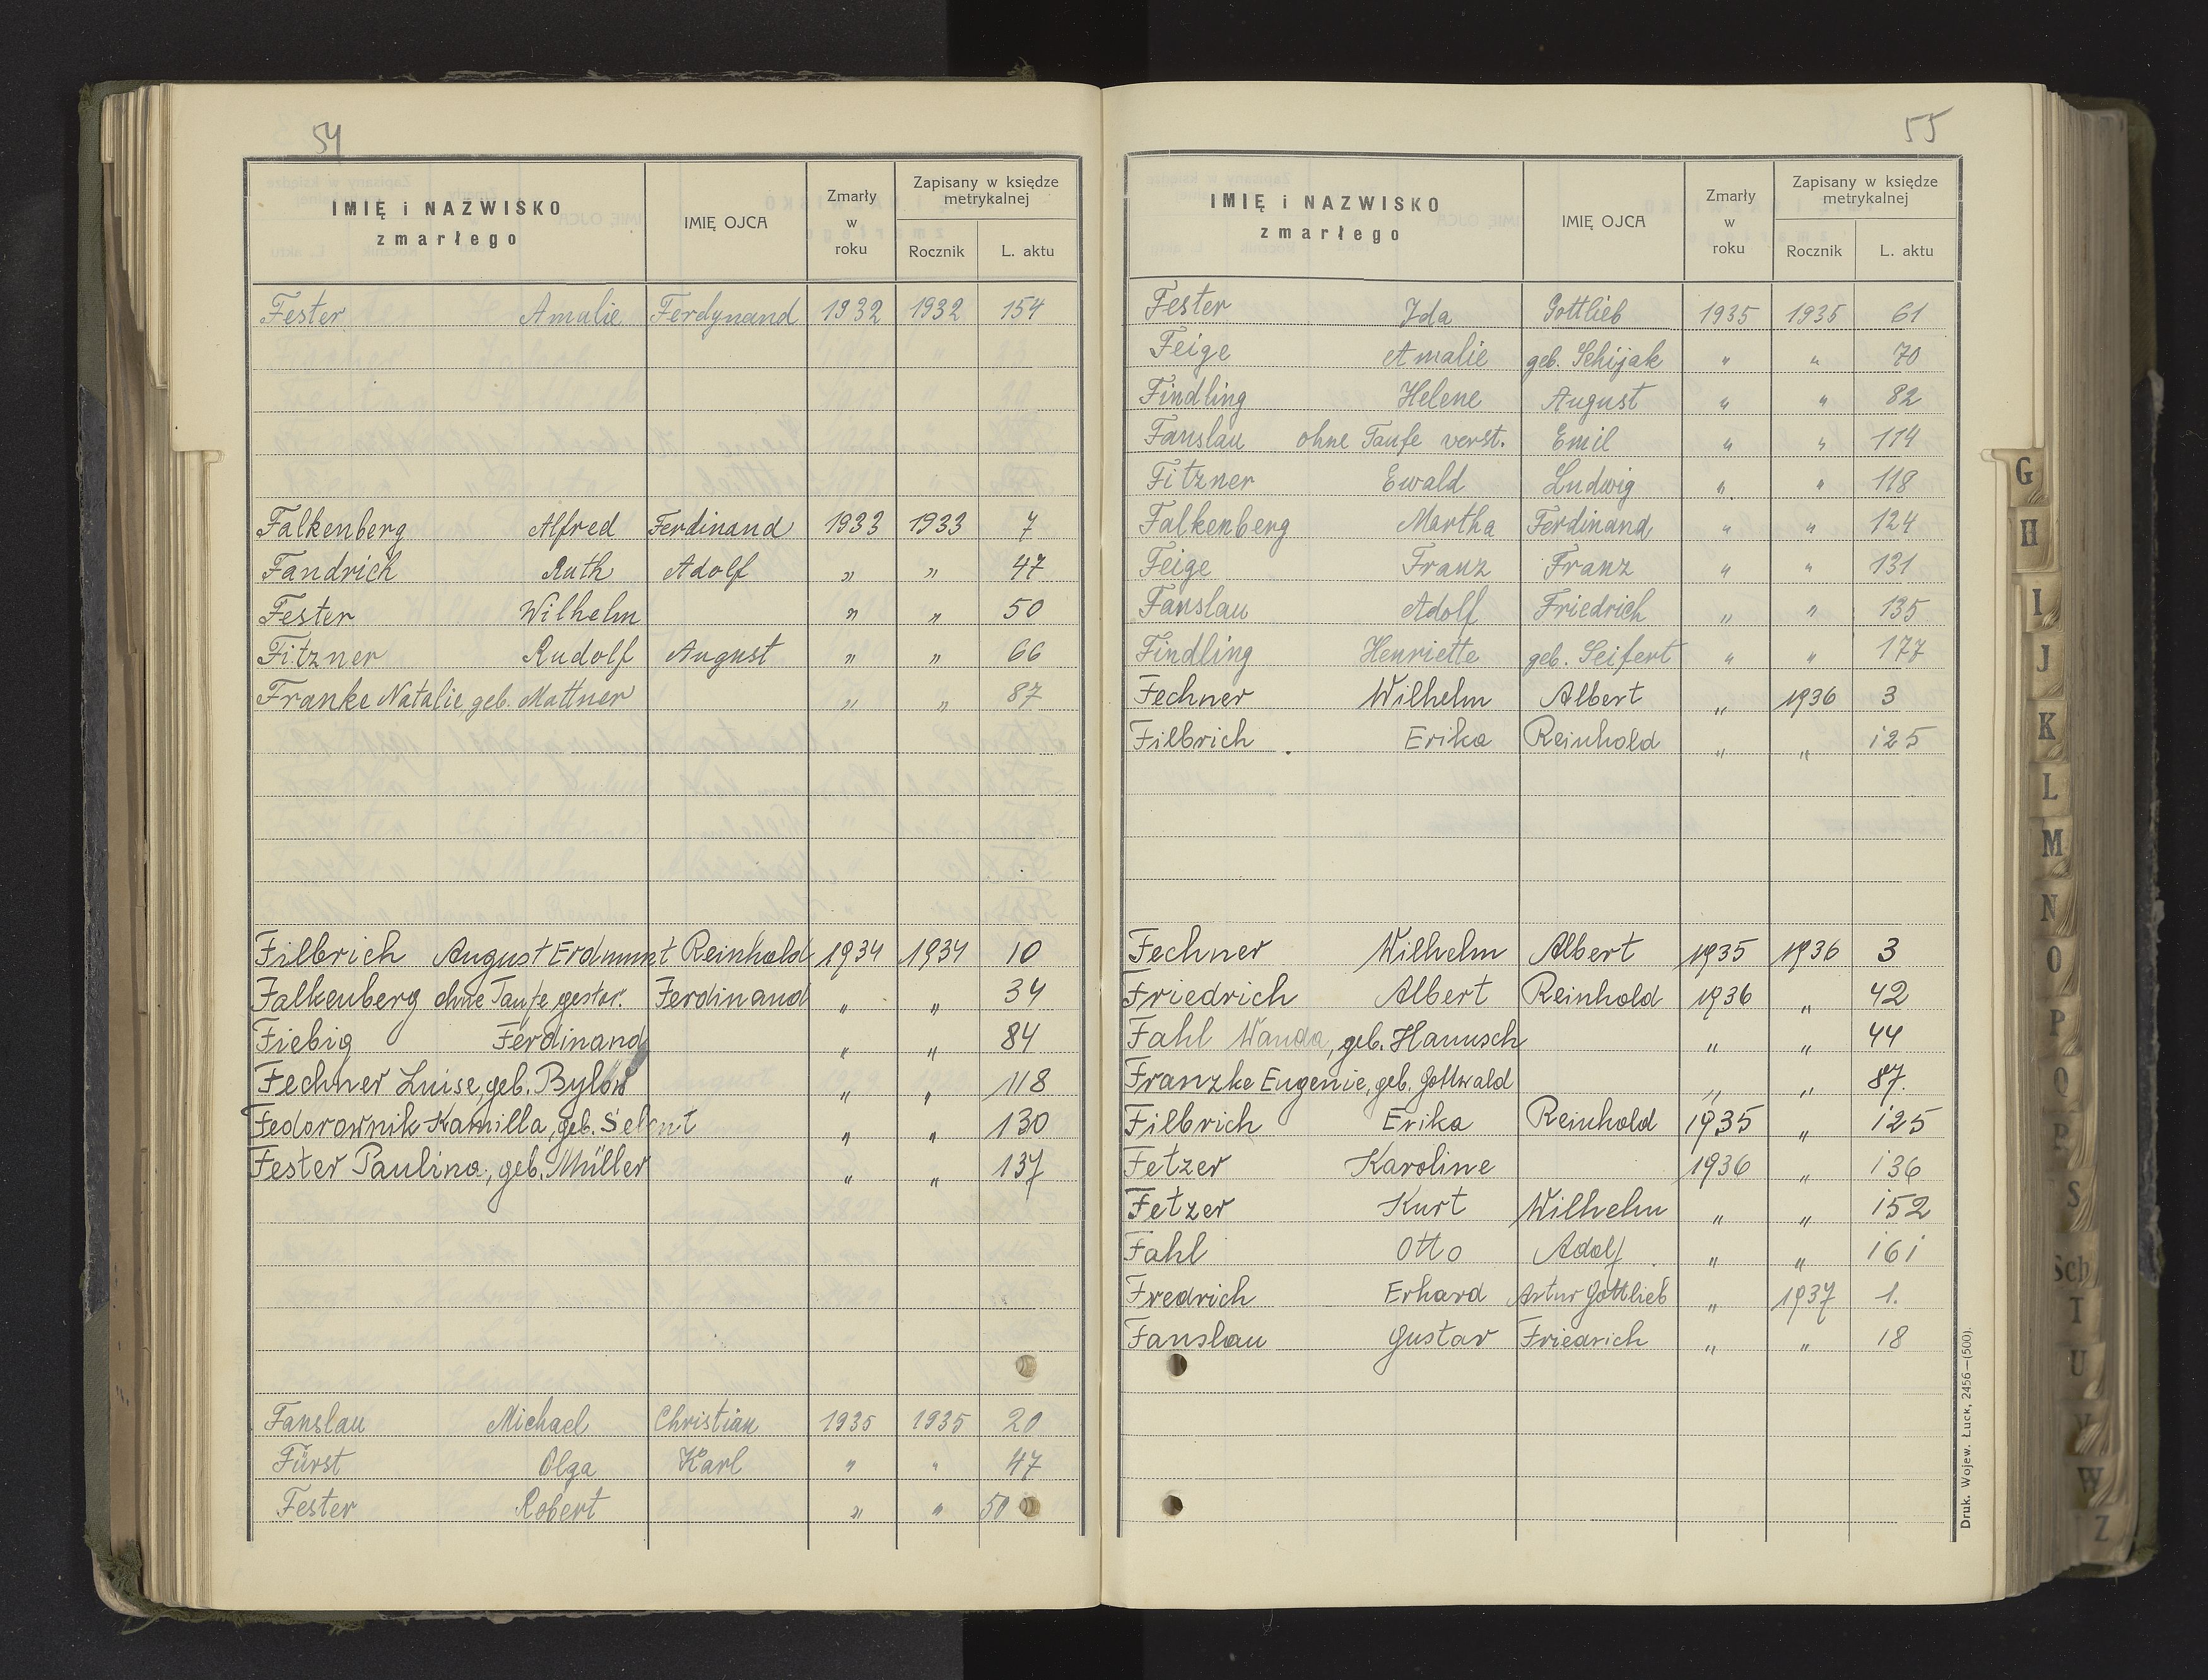 54
IMIĘ i NAZWISKO zmarłego IMIĘ OJCA Zmarły w roku Zapisany w księdze metrykalnej Rocznik L. aktu
Fester Amalie Ferdynand 1932 1932 154
Falkenberg Alfred Ferdinand 1933 1933 7
Fandrich Ruth Adolf " " 47
Fester Wilhelm " " 50
Fitzner Rudolf August " " 66
Franke Natalie, geb. Mattner " " 87
Filbrich August Erdmunt Reinhold 1934 1934 10
Falkenberg ohne Taufe gestor. Ferdinand " " 34
Fiebig Ferdinand " " 84
Fechner Luise, geb. Bylow " " 118
Fedorownik Kamilla, geb. Selent " " 130
Fester Paulina, geb. Müller " " 137
Fanslau Michael Christian 1935 1935 20
Fürst Olga Karl " " 47
Fester Robert " " 50
55
IMIĘ i NAZWISKO zmarłego IMIĘ OJCA Zmarły w roku Zapisany w księdze metrykalnej Rocznik L. aktu
Fester Ida Gottlieb 1935 1935 61
Feige Amalie geb. Schijak " " 70
Findling Helene August " " 82
Fanslau ohne Taufe verst. Emil " " 114
Fitzner Ewald Ludwig " " 118
Falkenberg Martha Ferdinand " " 124
Feige Franz Franz " " 131
Fanslau Adolf Friedrich " " 135
Findling Henriette geb. Seifert " " 177
Fechner Wilhelm Albert " 1936 3
Filbrich Erika Reinhold " " 125
Fechner Wilhelm Albert 1935 1936 3
Friedrich Albert Reinhold 1936 " 42
Fahl Wanda, geb. Hanusch " " 44
Franzke Eugenie, geb. Gottwald " " 87.
Filbrich Erika Reinhold 1935 " 125
Fetzer Karoline 1936 " 136
Fetzer Kurt Wilhelm " " 152
Fahl Otto Adolf " " 161
Fredrich Erhard Artur Gottlieb " 1937 1.
Fanslau Gustav Friedrich " " 18
Druk. Wojew. Łuck, 2456—(500).
G
H
I
J
K
L
M
N
O
P
Q
R
S
Sch
T
U
V
W
Z